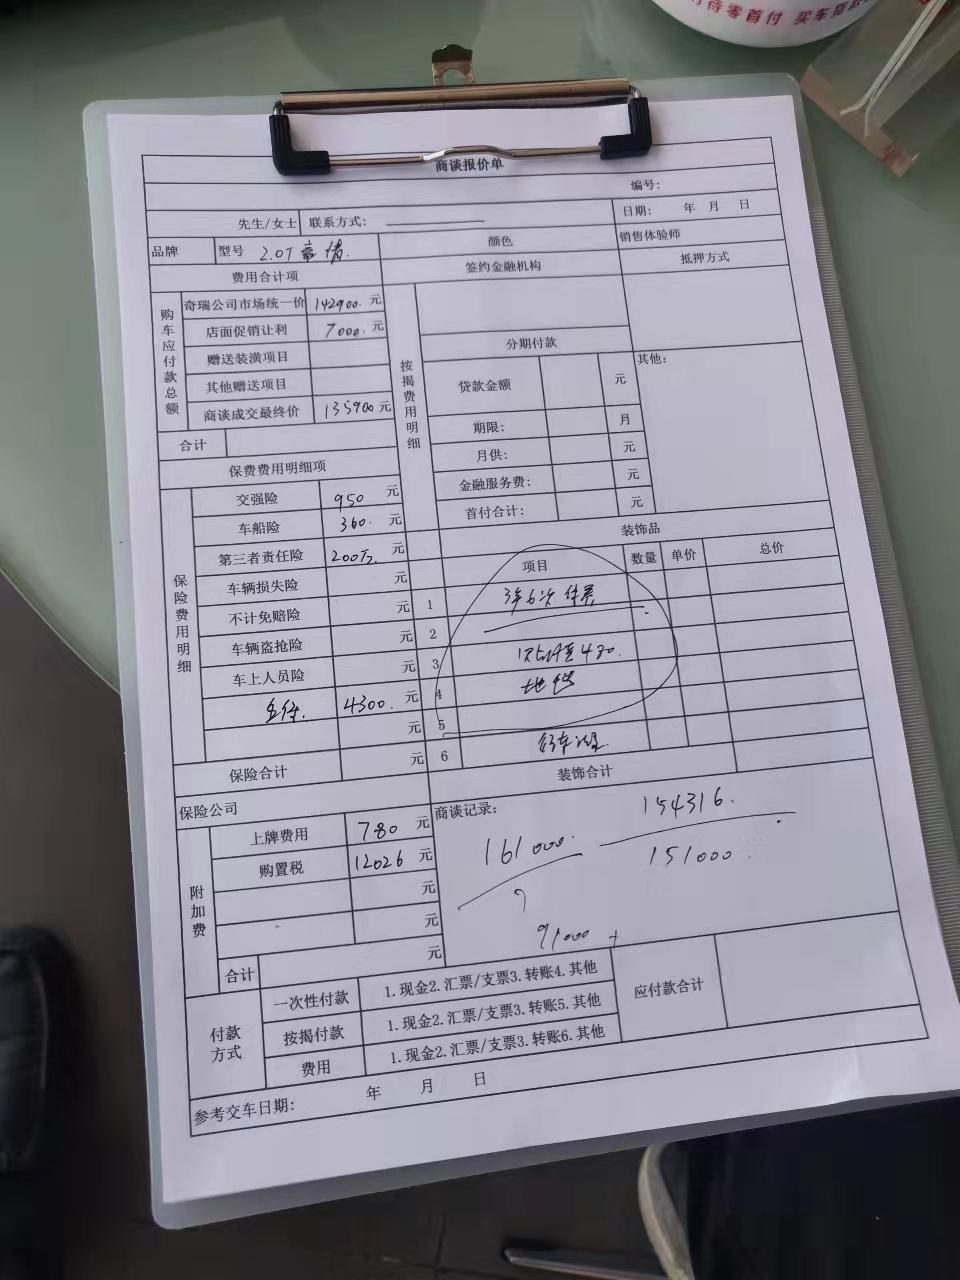 待零首付 买车贷款
商谈报价单
编号：
先生/女士 联系方式： 日期： 年 月 日
品牌 型号 2.0T 豪情. 颜色 销售体验师
费用合计项 签约金融机构 抵押方式
购车应付款总额
奇瑞公司市场统一价 142900. 元
店面促销让利 7000. 元
赠送装潢项目
其他赠送项目
商谈成交最终价 135900 元
合计
按揭费用明细
分期付款
贷款金额 元
期限： 月
月供： 元
金融服务费： 元
首付合计： 元
其他：
保费费用明细项
保险费用明细
交强险 950 元
车船险 360. 元
第三者责任险 200万. 元
车辆损失险 元
不计免赔险 元
车辆盗抢险 元
车上人员险 元
4300. 元
元
保险合计 元
装饰品
项目 数量 单价 总价
1 3年6次保养
2
3
4 地毯
5
6
装饰合计
保险公司
附加费
上牌费用 780 元
购置税 12026 元
元
元
合计 元
商谈记录：
154316.
161000.
151000.
91000 +
付款方式
一次性付款 1.现金2.汇票/支票3.转账4.其他
按揭付款 1.现金2.汇票/支票3.转账5.其他
费用 1.现金2.汇票/支票3.转账6.其他
应付款合计
参考交车日期： 年 月 日